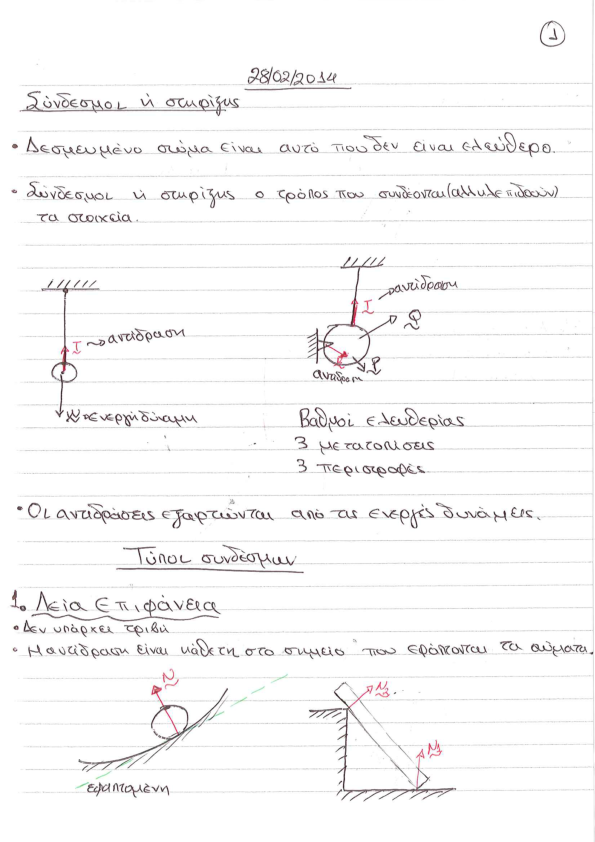 1
28/02/2014
Σύνδεσμοι ή στηρίξης
• Δεσμευμένο σώμα είναι αυτό που δεν είναι ελεύθερο.
• Σύνδεσμοι ή στηρίξης ο τρόπος που συνδέονται (αλληλεπιδρούν)
τα στοιχεία.
T → αντίδραση
W → ενεργή δύναμη
T → αντίδραση
Q
P
αντίδραση
Βαθμοί ελευθερίας
3 μετατοπίσεις
3 περιστροφές
• Οι αντιδράσεις εξαρτιώνται από τις ενεργές δυνάμεις.
Τύποι συνδέσμων
1. Λεία Επιφάνεια
• Δεν υπάρχει τριβή
• Η αντίδραση είναι κάθετη στο σημείο που εφάπτονται τα σώματα.
N
εφαπτομένη